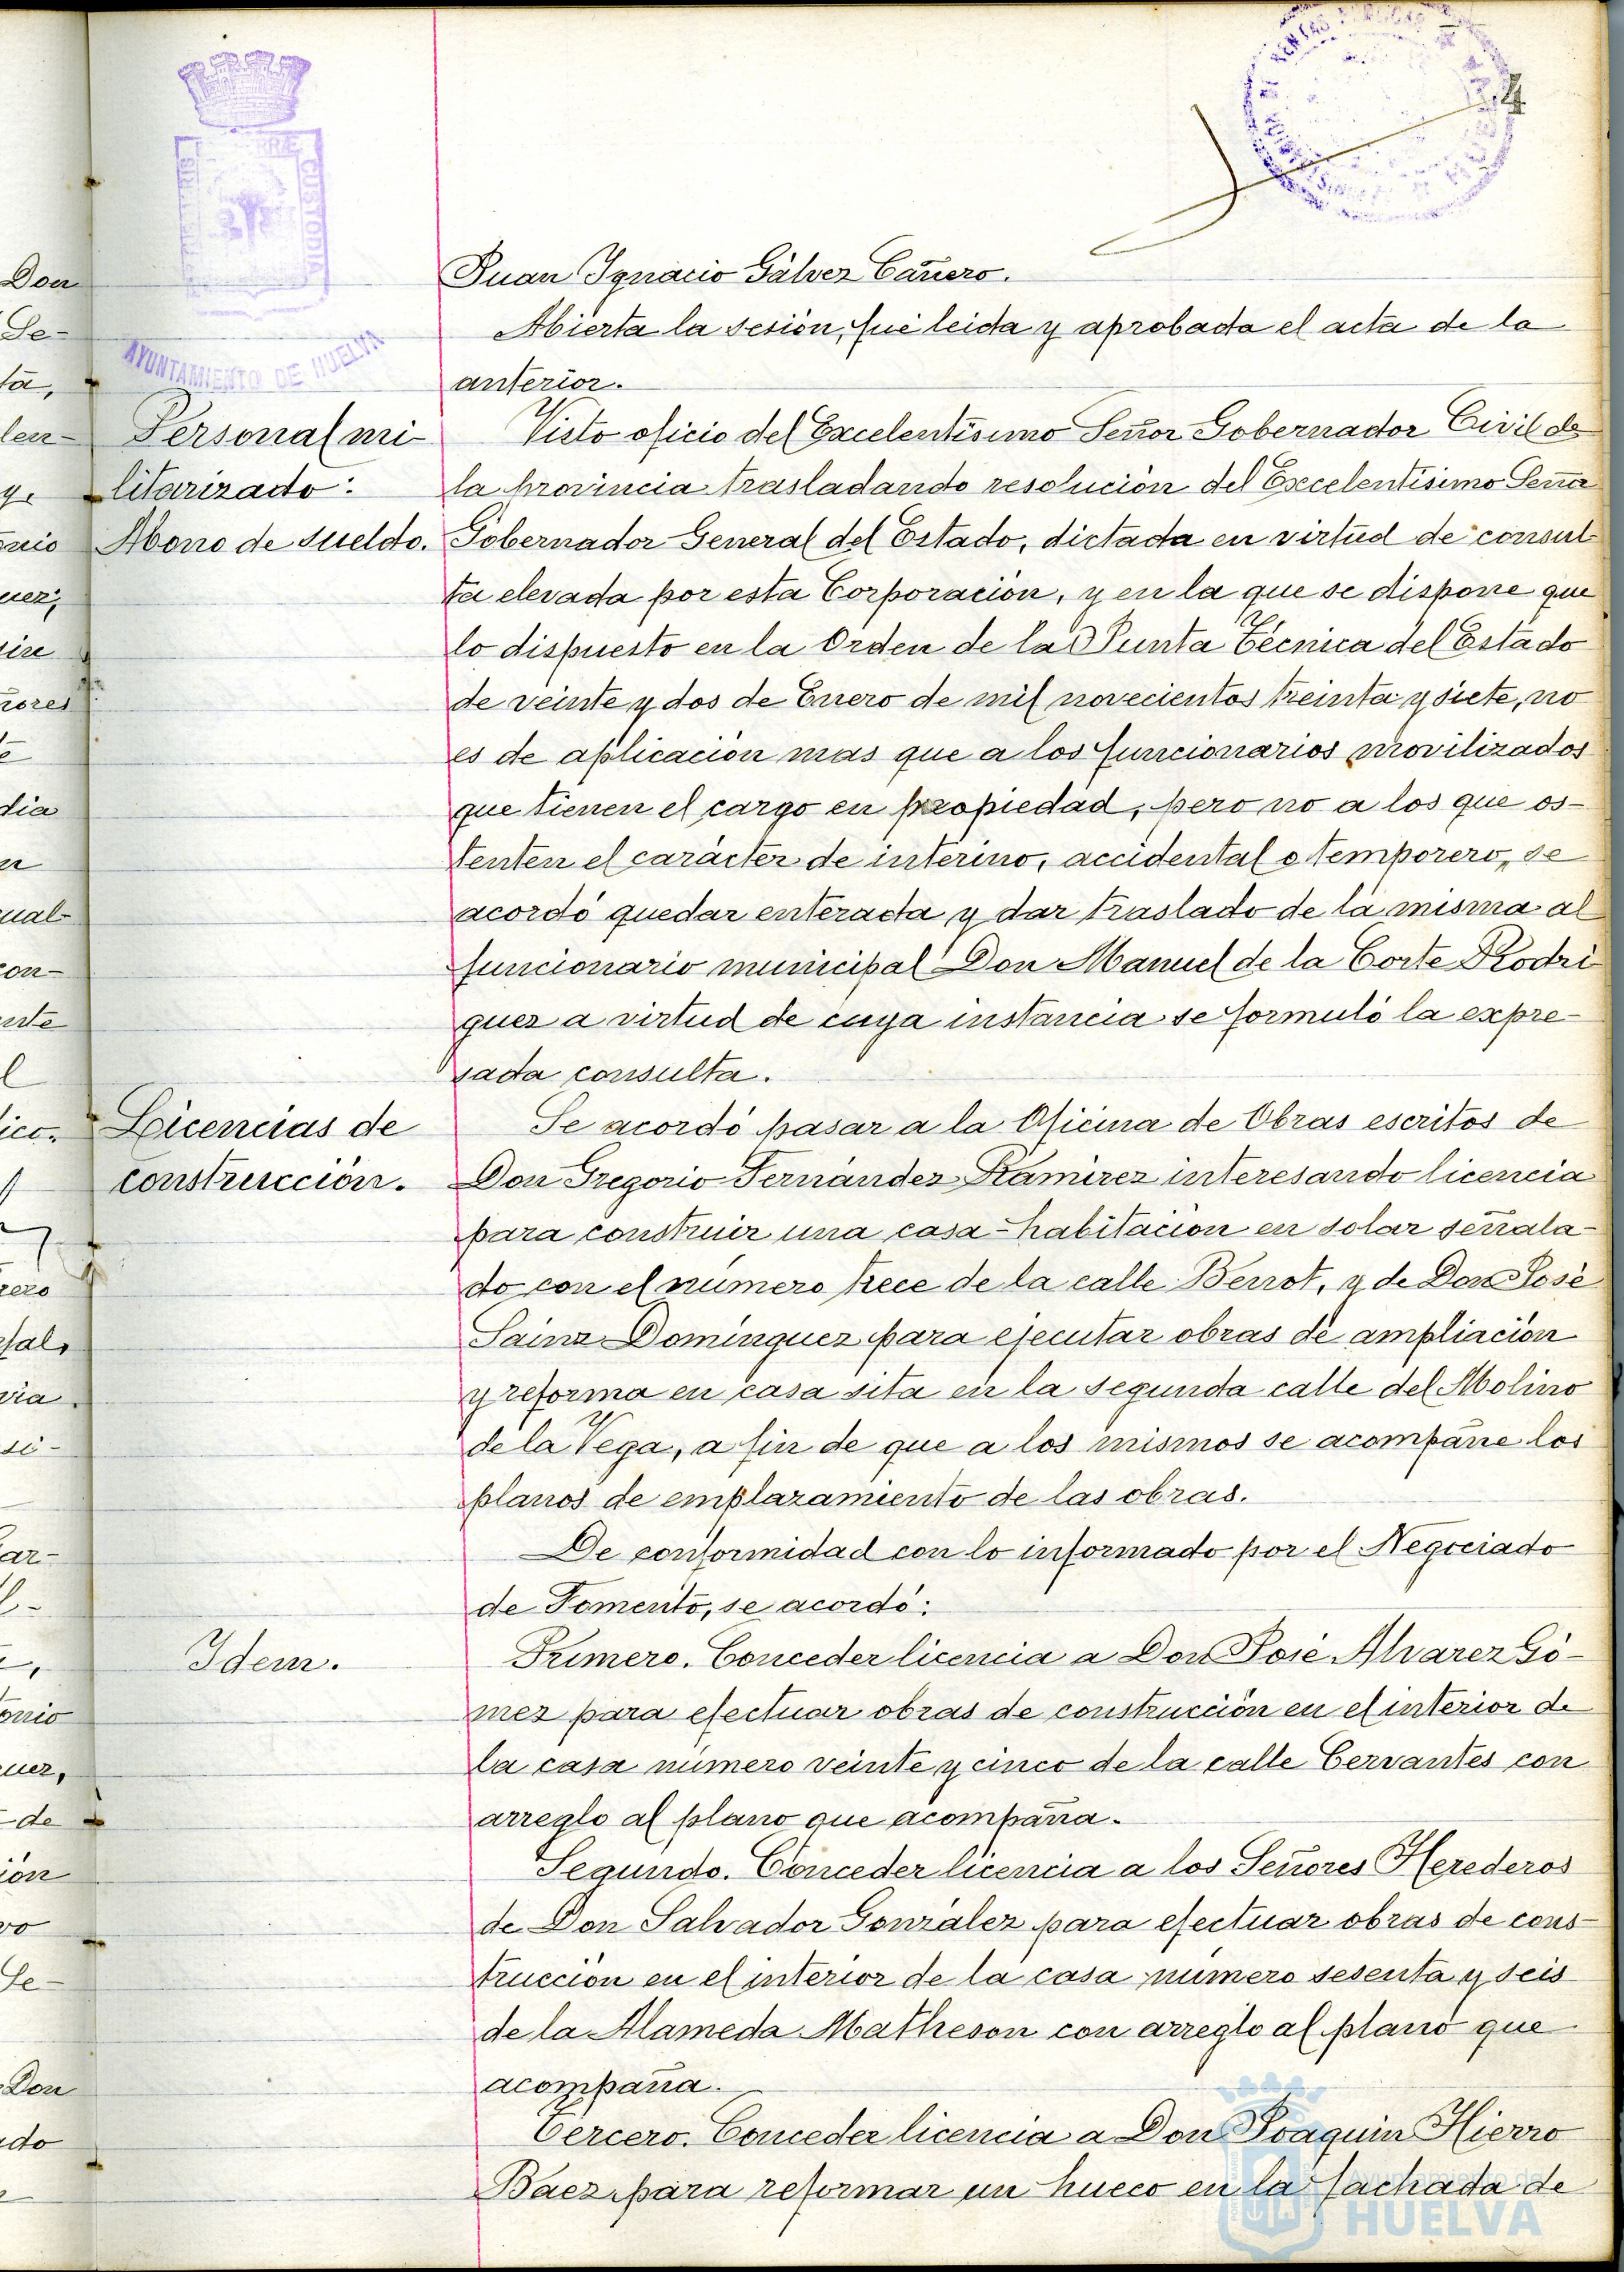 24
PORTUS MARIS ET TERRÆ CUSTODIA
AYUNTAMIENTO DE HUELVA
Juan Ignacio Gálvez Cañero.
Abierta la sesión, fué leida y aprobada el acta de la
anterior.
Personal mi-
litarizado:
Abono de sueldo.
Visto oficio del Excelentísimo Señor Gobernador Civil de
la provincia trasladando resolución del Excelentísimo Señor
Gobernador General del Estado, dictada en virtud de consul-
ta elevada por esta Corporación, y en la que se dispone que
lo dispuesto en la Orden de la Junta Técnica del Estado
de veinte y dos de Enero de mil novecientos treinta y siete, no
es de aplicación mas que a los funcionarios movilizados
que tienen el cargo en propiedad, pero no a los que os-
tenten el carácter de interino, accidental o temporero, se
acordó quedar enterada y dar traslado de la misma al
funcionario municipal Don Manuel de la Corte Rodrí-
guez a virtud de cuya instancia se formuló la expre-
sada consulta.
Licencias de
construcción.
Se acordó pasar a la Oficina de Obras escritos de
Don Gregorio Fernández Ramírez interesando licencia
para construir una casa-habitación en solar señala-
do con el número trece de la calle Berrot, y de Don José
Sainz Domínguez para ejecutar obras de ampliación
y reforma en casa sita en la segunda calle del Molino
de la Vega, a fin de que a los mismos se acompañe los
planos de emplazamiento de las obras.
De conformidad con lo informado por el Negociado
de Fomento, se acordó:
Idem.
Primero. Conceder licencia a Don José Alvarez Gó-
mez para efectuar obras de construcción en el interior de
la casa número veinte y cinco de la calle Cervantes con
arreglo al plano que acompaña.
Segundo. Conceder licencia a los Señores Herederos
de Don Salvador González para efectuar obras de cons-
trucción en el interior de la casa número sesenta y seis
de la Alameda Matheson con arreglo al plano que
acompaña.
Tercero. Conceder licencia a Don Joaquin Hierro
Baez para reformar un hueco en la fachada de
Ayuntamiento de
HUELVA